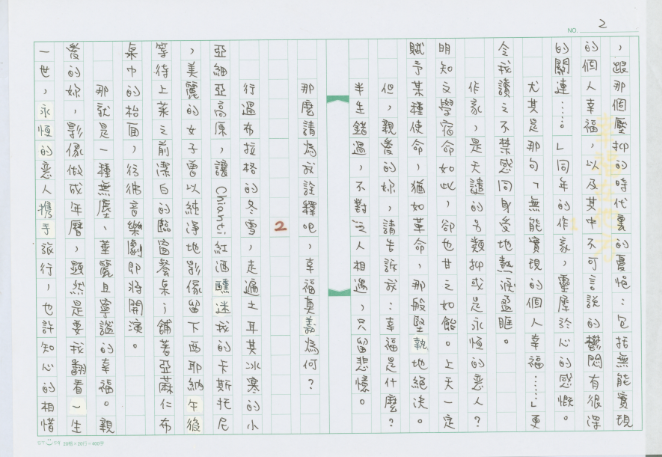 NO. 2
，跟那個壓抑的時代裏的憂悒：包括無能實現
的個人幸福，以及其中不可言說的鬱悶有很深
的關連……。」同年的作家，靈犀於心的感慨。
尤其是那句「無能實現的個人幸福……」更
令我讀之不禁感同身受地熱淚盈眶。
作家，是天譴的另類抑或是永恆的戀人？
明知文學宿命如此，卻也甘之如飴。上天一定
賦予某種使命，猶如革命，那般堅執地絕決。
但，親愛的妳，請告訴我：幸福是什麼？
半生錯過，不對之人相遇，只留悲懷。
那麼請為我詮釋吧，幸福奧義為何？
2
行過布拉格的冬雪，走過土耳其冰寒的小
亞細亞高原，讓Chianti紅酒醺迷我的卡斯托尼
，美麗的女子曾以純淨地影像留下西耶納午後
等待上菜之前潔白的臨窗餐桌；鋪著亞麻仁布
桌巾的枱面，彷彿音樂劇即將開演。
那就是一種無塵、華麗且寧謐的幸福。親
愛的妳，影像做成年曆，顯然是要我翻看一生
一世，永恆的戀人攜手旅行，也許知心的相惜